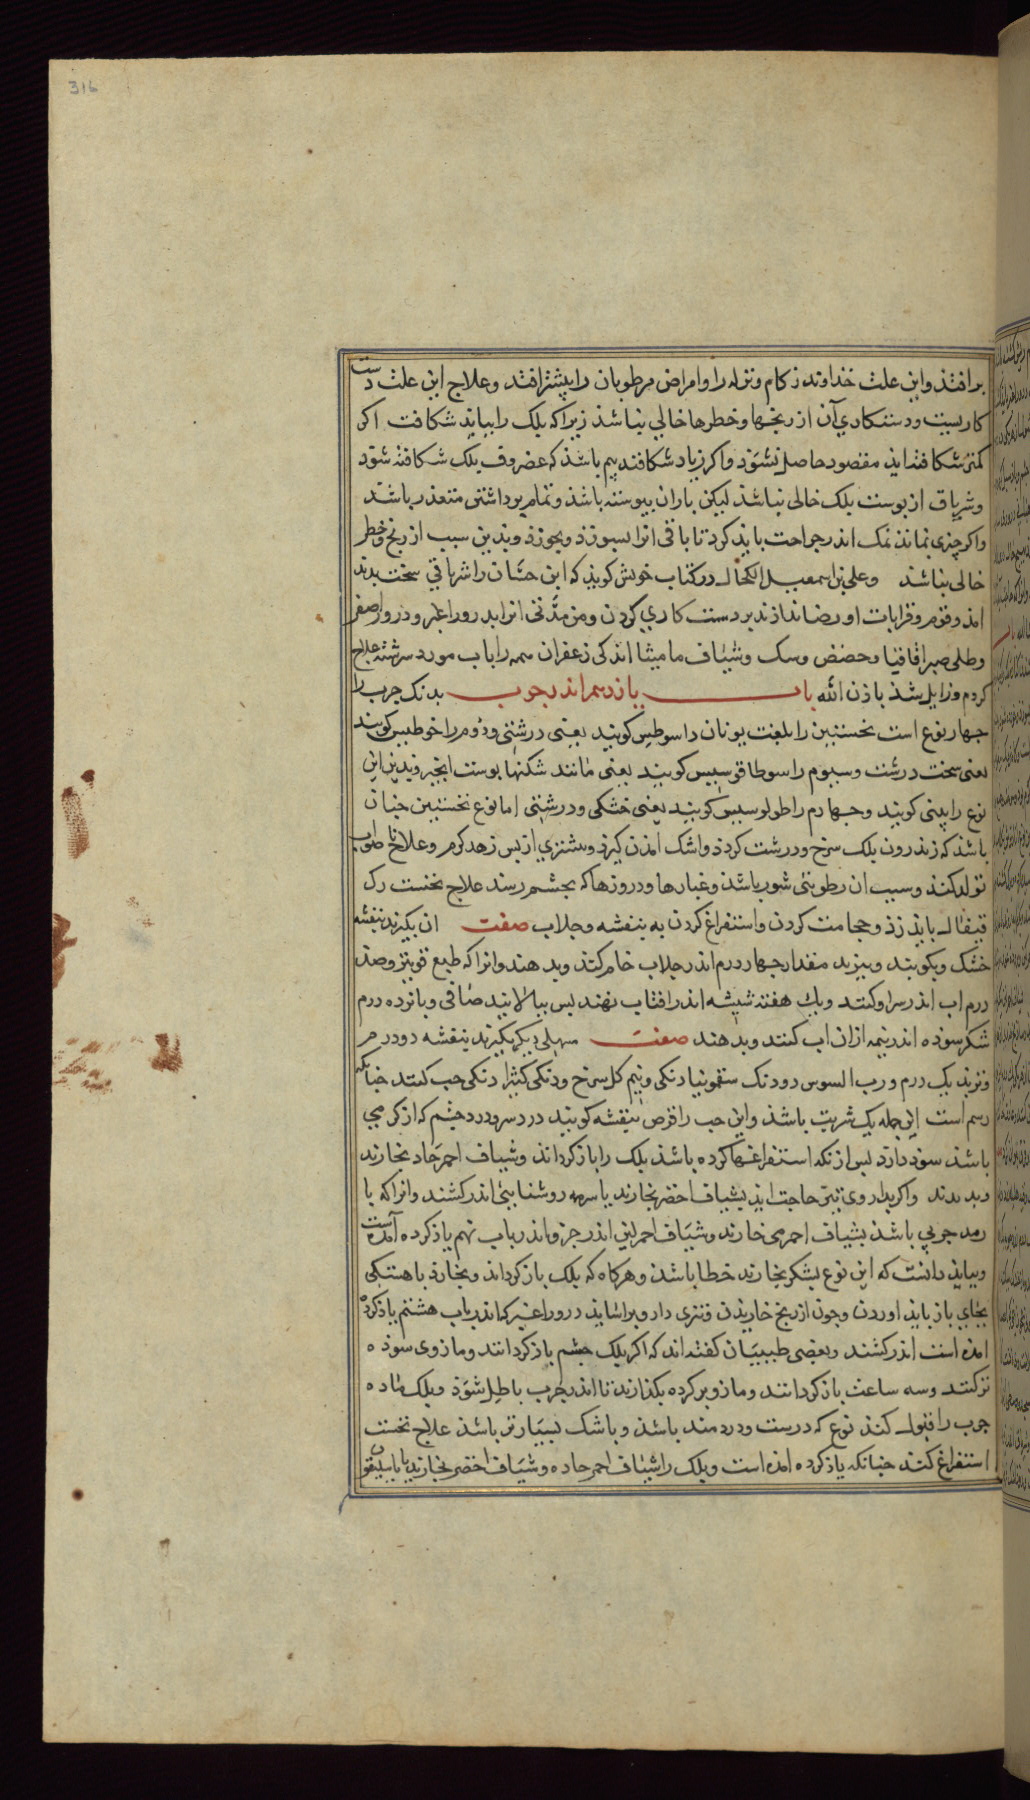 316
بر افتذ واین علت خداوند زکام ونزله را وامراض مرطوبان را بیشتر افتد وعلاج این علت دست
کاریست ودستکاری آن از رنجها وخطرها خالی نباشذ زیرا که پلک را بباید شکافت اکر
کمتر شکافته اید مقصود حاصل نشوذ واکر زیاد شکافند بیم باشذ که غضروف پلک شکافته شود
وشرناق از پوست پلک خالی نباشذ لیکن باران پیوسته باشذ وتمام برداشتن متعذر باشد
واکر چیزی بماند نمک اندر جراحت باید کرد تا باقی انرا بسوزد وبدین سبب از رنج وخطر
خالی نباشد وعلی بن اسمعیل الکحال در کتاب خویش کوید که این حسان را شرناقی سخت بد
امذ وقوم وقرابات او رضا ندادند بر دست کاری کردن ومن مدتی انرا بدرور اغبر ودرور اصفر
وطلی صبر اقاقیا وحضض وسک وشیاف مامیثا اندکی زعفران همه را باب مورد سرشته علاج
کردم وزایل شذ باذن الله باب یازدهم اندر جرب بدانک جرب را
چهار نوع است نخستین را بلغت یونان داسوطیس کویند یعنی درشتی ودوم را خوطیس کویند
یعنی سخت درشت وسیوم را سوطاقوسیس کویند یعنی مانند شکنها پوست انجیر وبدین این
نوع را تینی کویند وچهارم را طولوسیس کویند یعنی خشکی ودرشتی اما نوع نخستین چنان
باشذ که اندرون پلک سرخ ودرشت کردد واشک امدن کیرد وبیشتری از پس رمد کرم وعلاج
تولد کند وسبب ان رطوبتی شور باشذ وغبارها ودودها که بچشم رسد علاج نخست رک
قیفال باید زد وحجامت کردن واستفراغ کردن به بنفشه وجلاب صفت ان بکیرند بنفشه
خشک وبکوبند وببیزند مقدار چهار درم اندر جلاب خام کنند وبدهند وانرا که طبع قویتر وصد
درم اب اندر سر او کنند ویک هفته شیشه اندر افتاب نهند پس بپالایند صافی وپانزده درم
شکر سوده اندر نیمه ازان اب کنند وبدهند صفت مسهلی دیکر بکیرند بنفشه دو درم
وتربد یک درم ورب السوس دو دنک سقمونیا دنکی ونیم کل سرخ ودنکی کثیرا دنکی حب کنند چنانکه
رسم است این جمله یک شربت باشذ واین حب را قرص بنفشه کویند درد سر ودرد چشم که از کرمی
باشذ سود دارد پس ازانکه استفراغها کرده باشذ پلک را باز کردانند وشیاف احمر حاد بخارند
وبدهند واکر بداروی تیزتر حاجت اید بشیاف اخضر بخارند یا سرمه روشنایی اندر کشند وانرا که با
رمد جربی باشذ بشیاف احمر می خارند وشیاف احمر لین اندر جزو اندر باب نهم یاد کرده آمده است
وبباید دانست که این نوع بشکر بخارند خطا باشذ وهرکاه که پلک باز کردانند وبخارند باهستکی
بجای باز باید اوردن وچون از رنج خاریدن وتیزی دارو براساید درور اغبر که اندر باب هشتم یاد کرده
امده است اندر کشند وبعضی طبیبان کفته اند که اکر پلک چشم باز کردانند ومازوی سوده
تر کنند وسه ساعت باز کردانند ومازو بر کرده بکذارند تا اندر جرب باطل شود وپلک ماده
جرب را قبول کند نوع که درست ودردمند باشذ وباشک بسیار تر باشد علاج نخست
استفراغ کنند چنانکه یاد کرده امده است وپلک را بشیاف احمر حاده وشیاف اخضر بخارند یا باسلیقون